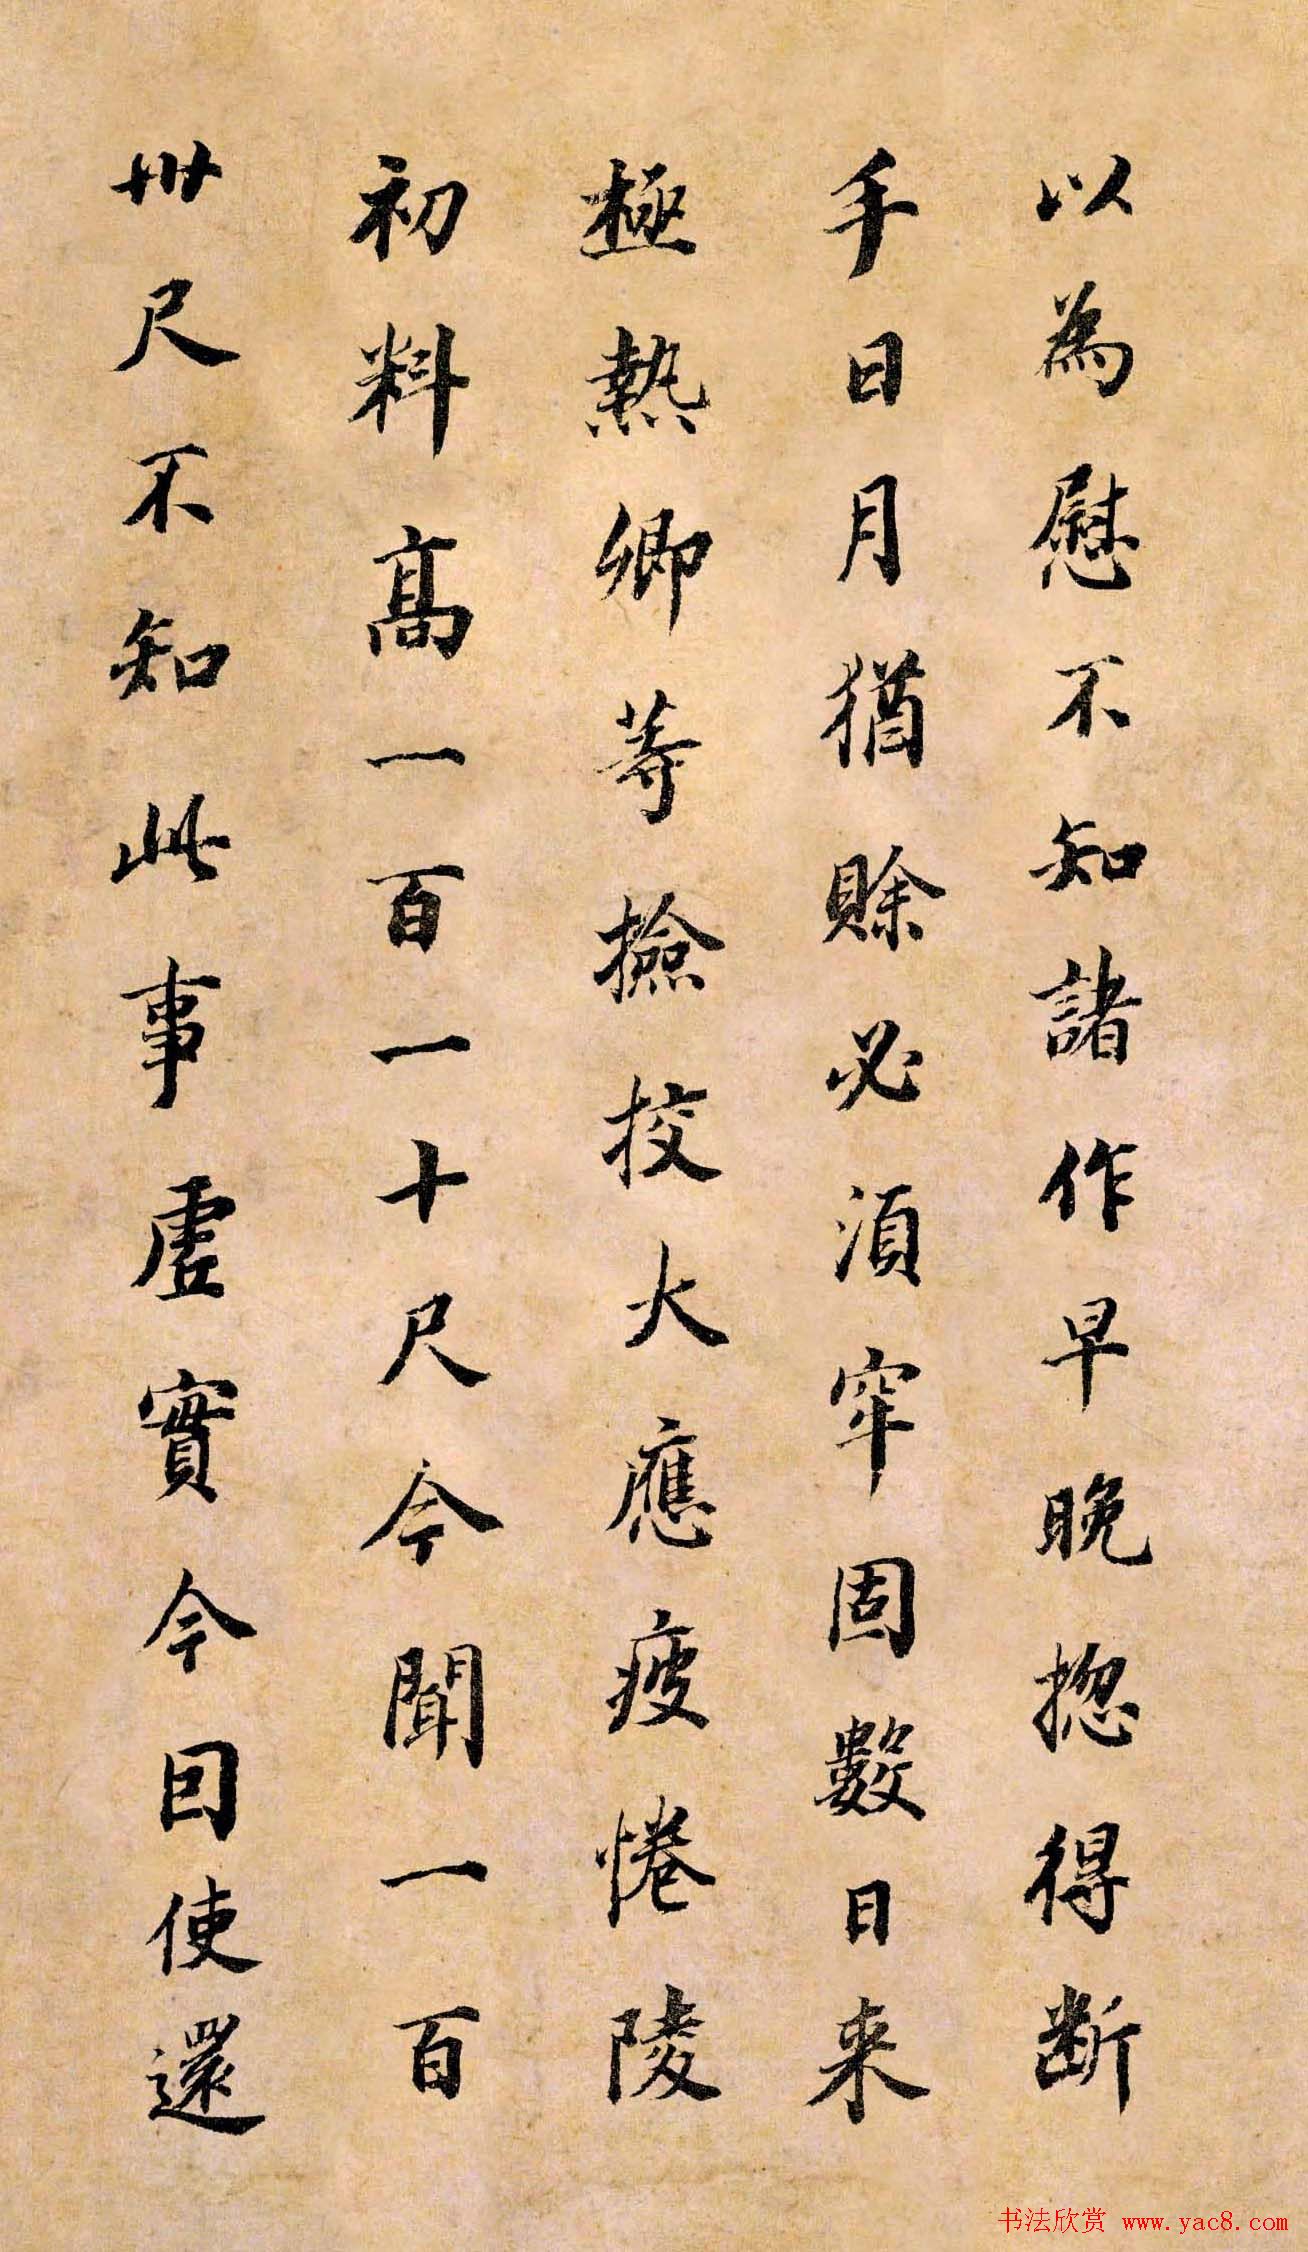 以為慰不知諸作早晚揔得断
手日月猶賒必湏窂固數日来
極熱卿䓁撿挍大應疲惓陵
初料髙一百一十尺今聞一百
卅尺不知此事虛實今囙使還
书法欣赏 www.yac8.com